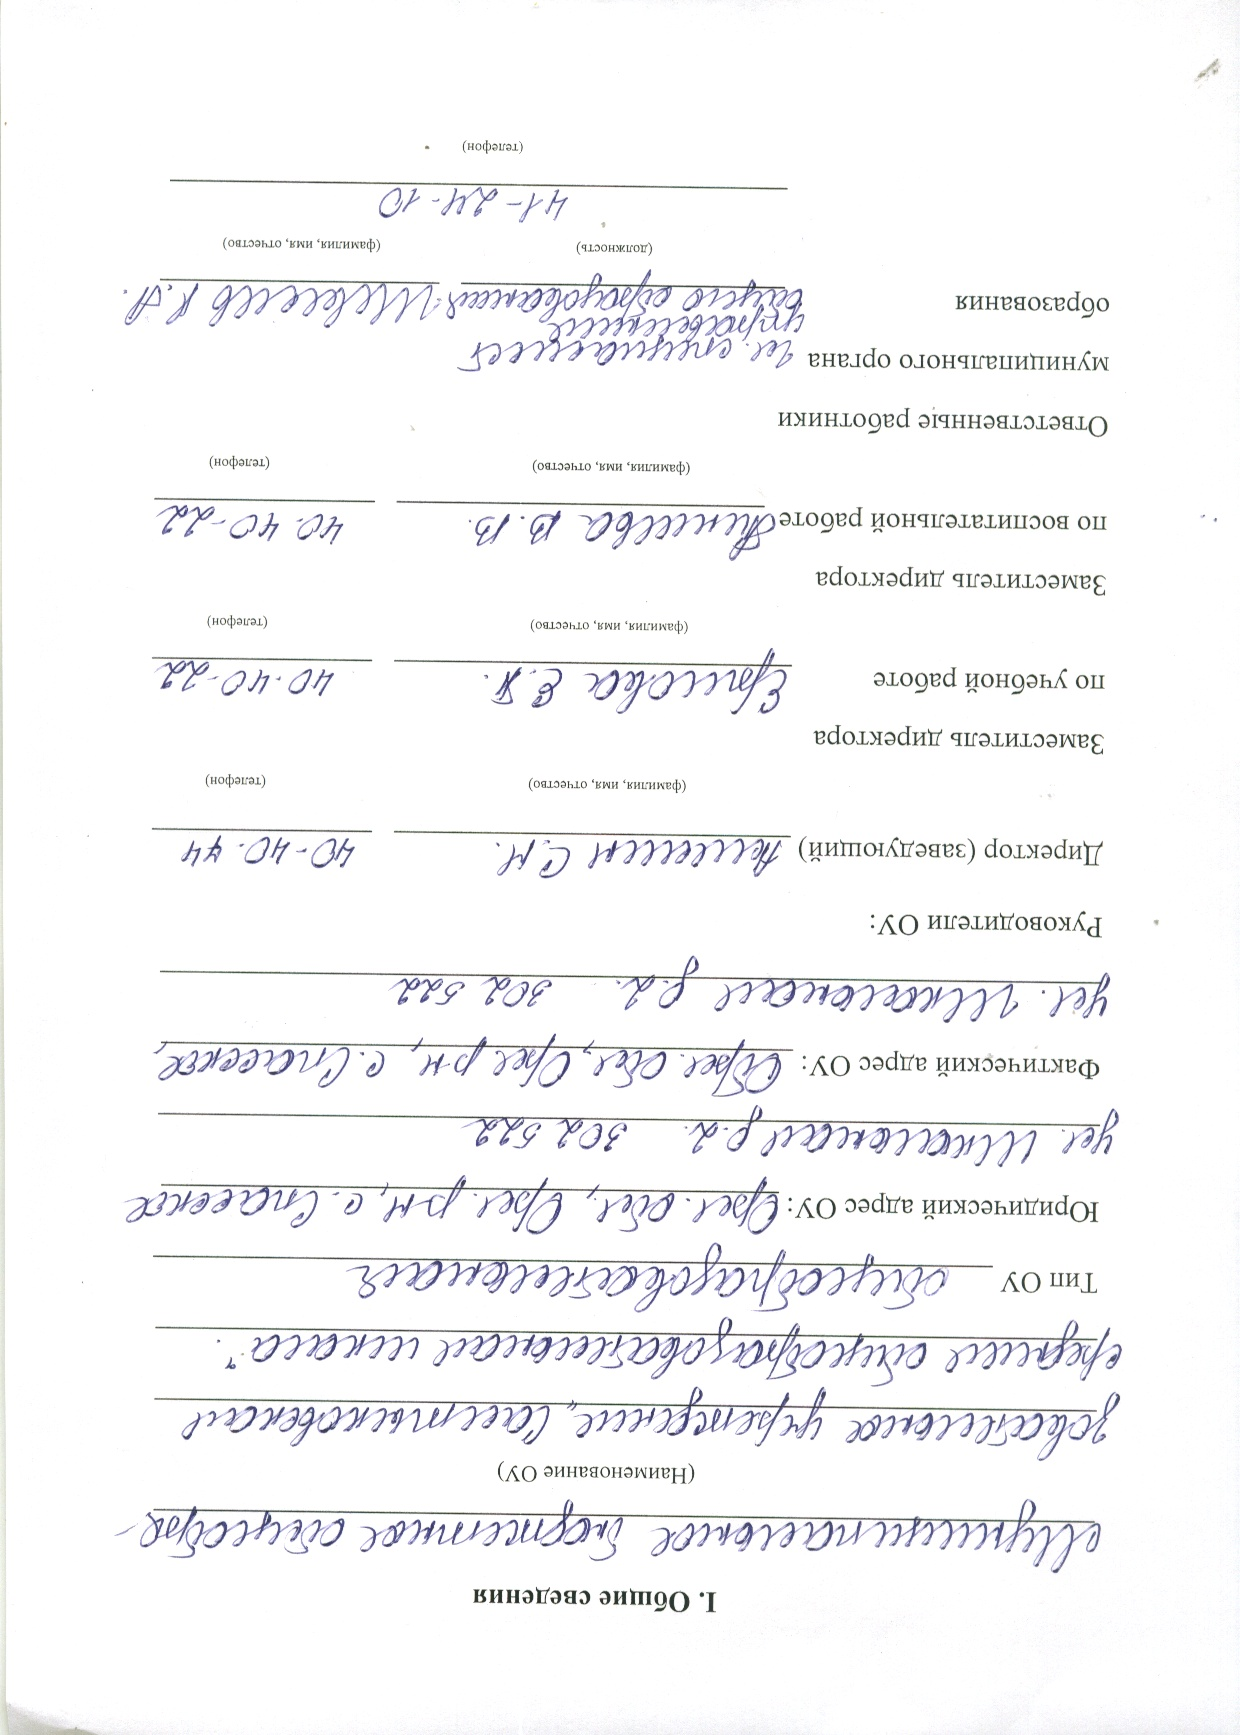 I. Общие сведения
Муниципальное бюджетное общеобра-
(Наименование ОУ)
зовательное учреждение „Салтыковская
средняя общеобразовательная школа“.
Тип ОУ общеобразовательная
Юридический адрес ОУ: Орл. обл., Орл. р-н, с. Спасское
ул. Школьная д.2. 302 522
Фактический адрес ОУ: Орл. обл., Орл р-н, с. Спасское,
ул. Школьная д.2. 302 522
Руководители ОУ:
Директор (заведующий) С.Н. 40-40-44
(фамилия, имя, отчество) (телефон)
Заместитель директора
по учебной работе Е.А. 40-40-22
(фамилия, имя, отчество) (телефон)
Заместитель директора
по воспитательной работе В.В. 40-40-22
(фамилия, имя, отчество) (телефон)
Ответственные работники
муниципального органа гл. специалист
управления
образования общего образования К.А.
(должность) (фамилия, имя, отчество)
41-24-10
(телефон)